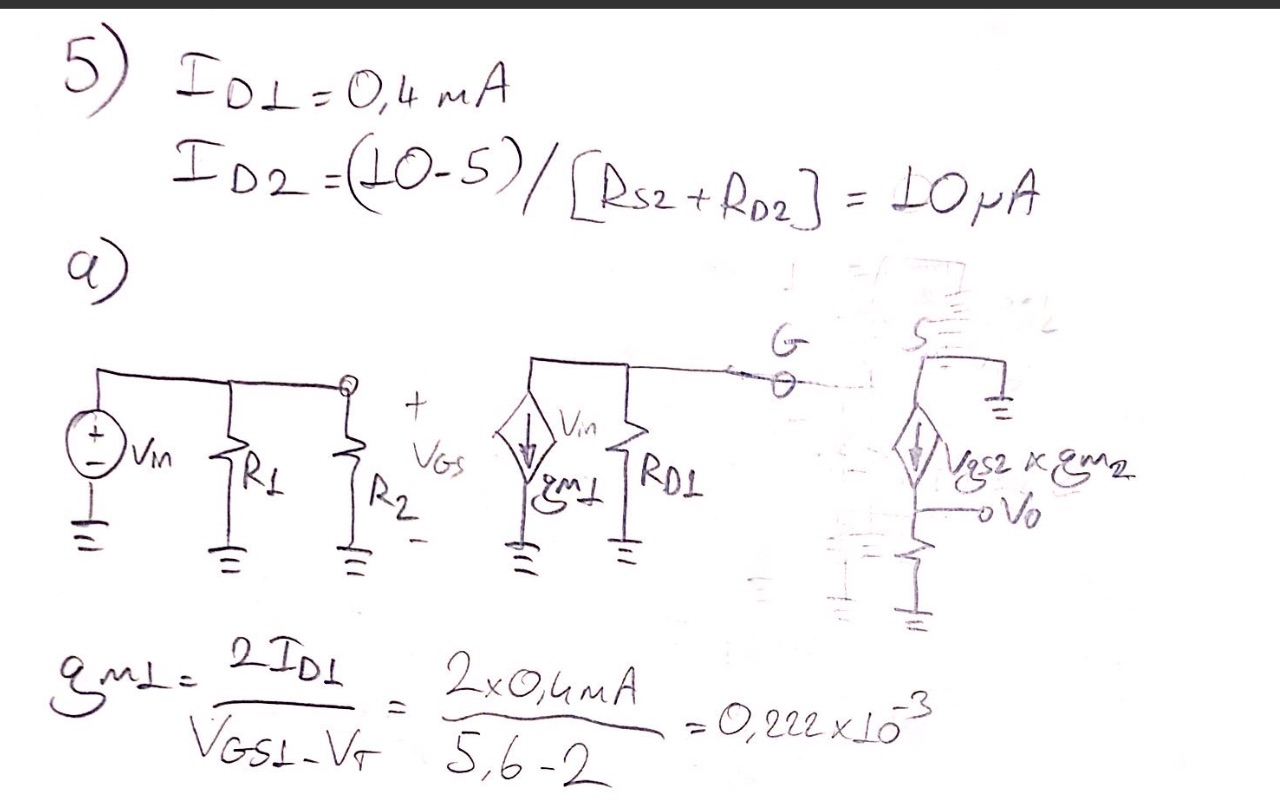 5) ID1 = 0,4 mA
ID2 = (10-5)/[RS2 + RD2] = 10 μA
a)
G S
Vin R1 R2 + VGS - Vin gm1 RD1 Vgs2 x gm2
Vo
gm1 = 2ID1 / VGS1 - VT = 2x0,4mA / 5,6-2 = 0,222 x 10^-3